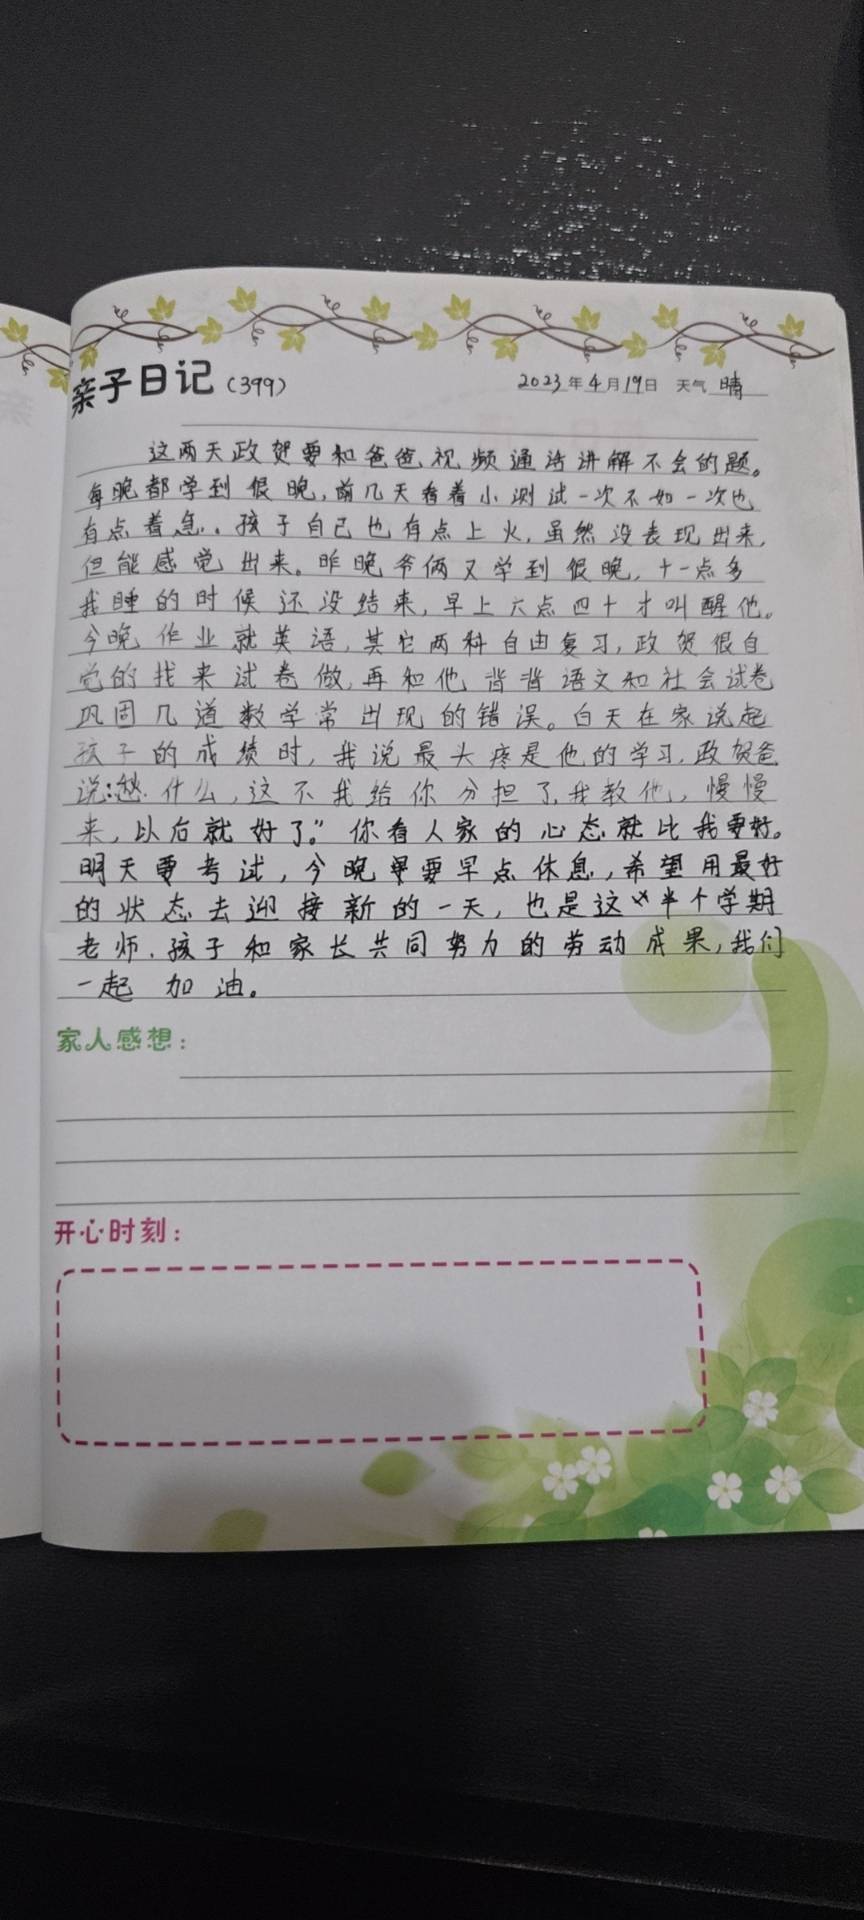 亲子日记(399) 2023年4月19日 天气 晴
这两天政贺要和爸爸视频通话讲解不会的题。
每晚都学到很晚,前几天看着小测试一次不如一次也
有点着急。孩子自己也有点上火,虽然没表现出来,
但能感觉出来。昨晚爷俩又学到很晚,十一点多
我睡的时候还没结束,早上六点四十才叫醒他。
今晚作业就英语,其它两科自由复习,政贺很自
觉的找来试卷做,再和他背背语文和社会试卷
巩固几道数学常出现的错误。白天在家说起
孩子的成绩时,我说最头疼是他的学习,政贺爸
说:愁什么,这不我给你分担了,我教他,慢慢
来,以后就好了。”你看人家的心态就比我要好。
明天要考试,今晚要早点休息,希望用最好
的状态去迎接新的一天,也是这半个学期
老师、孩子和家长共同努力的劳动成果,我们
一起加油。
家人感想:
开心时刻: